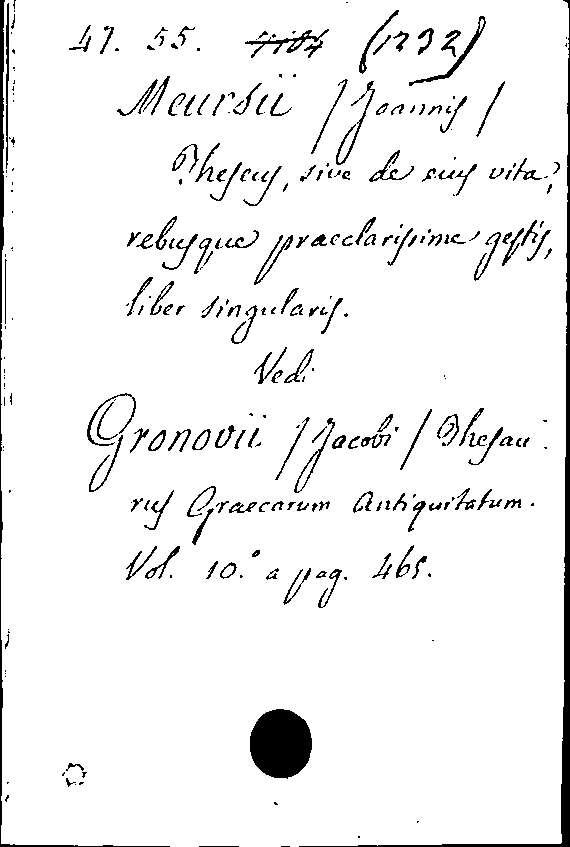 47. 55. 7184 (1232)
Meursii / Joannis /
Theseus, sive de eius vita,
rebusque praeclarissime gestis,
liber singularis.
Vedi
Gronovii / Jacobi / Thesau
rus Graecarum Antiquitatum.
Vol. 10.º a pag. 465.